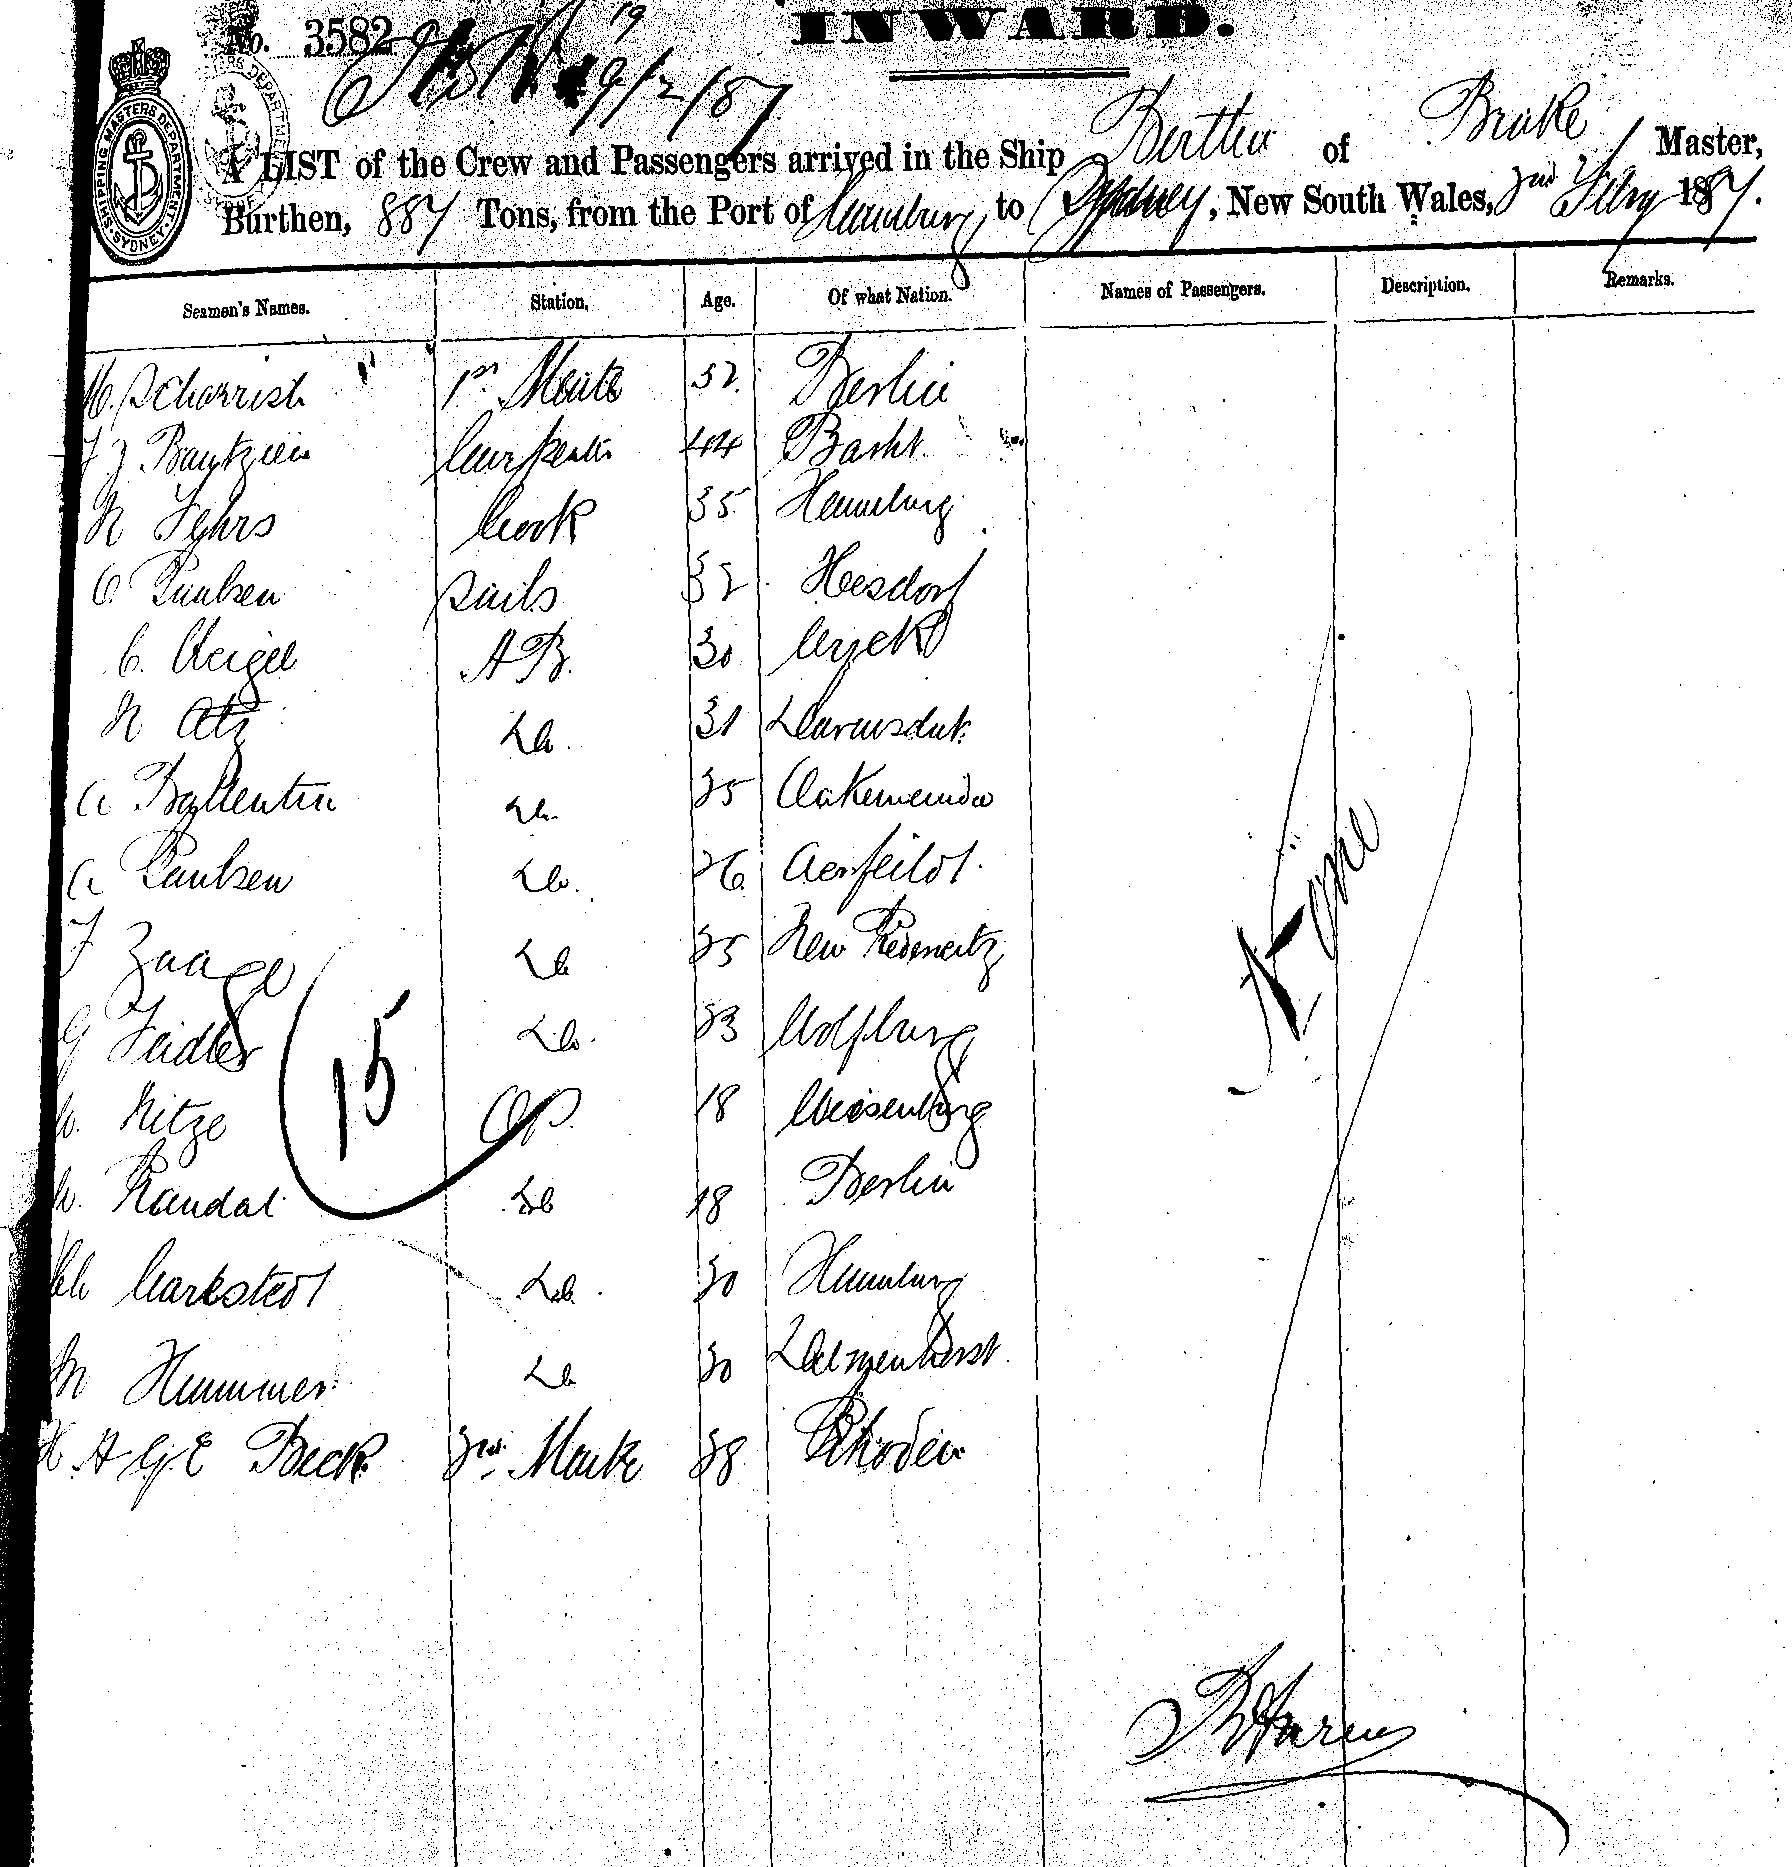 INWARD.
No. 3582
19
9/2/87
SHIPPING MASTERS DEPARTMENT SYDNEY
A LIST of the Crew and Passengers arrived in the Ship Bertha of Brake Master,
Burthen, 887 Tons, from the Port of Hamburg, to Sydney, New South Wales, 2nd Febry 1887.
Seamen's Names. Station. Age. Of what Nation. Names of Passengers. Description. Remarks.
Scharrish 1st Mate 32 Berlin
Carpenter 44 Barht
N Fehrs Cook 35 Hamburg
C Paulsen Sails 32
C. Weigel A B. 30
N Atz Do. 31
A Ballentin Do. 35
A Paulsen Do. 26
F Zaage Do 35 New
G Fiedler Do. 33 Wolfburg
W. Nitze OS. 18
W. Randal Do 18 Berlin
Carkstedt Do. 30 Hamburg
M Hammer Do 30 Delmenhorst
H. A G E Beck 2nd Mate 38 Rhoden
15
None